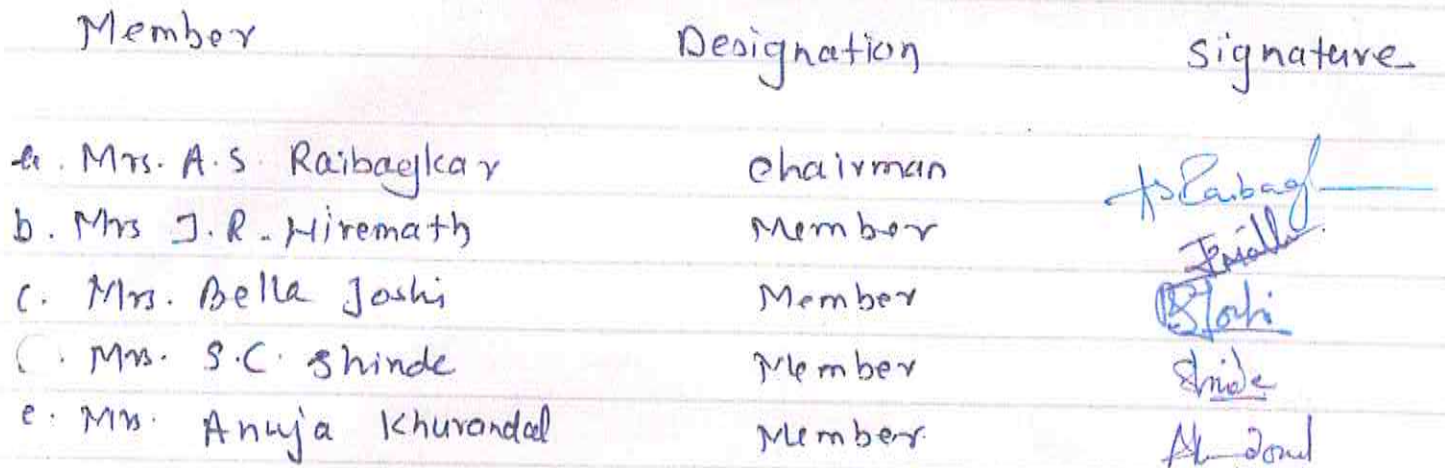 Member Designation Signature
a. Mrs. A.S. Raibagkar Chairman
b. Mrs J.R. Hiremath Member
c. Mrs. Bella Joshi Member BJoshi
(. Mrs. S.C. Shinde Member Shinde
e. Mrs. Anuja Khurandal Member